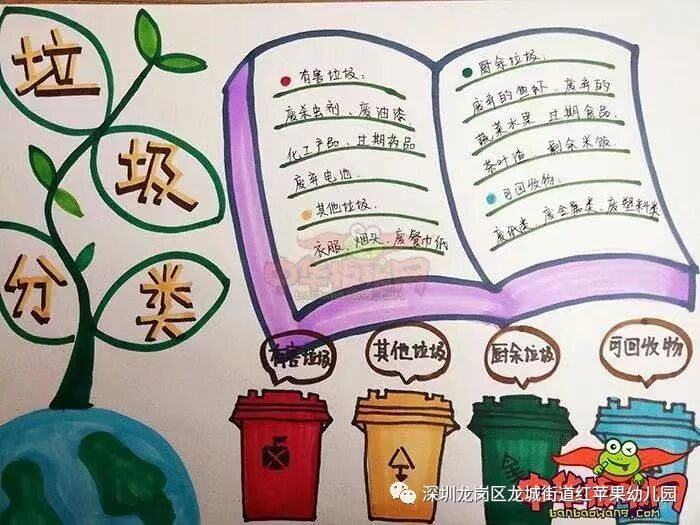 垃
圾
分
类
有害垃圾:
废杀虫剂、废油漆、
化工产品、过期药品
废弃电池.
其他垃圾.
衣服、烟头、废餐巾纸
厨余垃圾:
废弃的鱼虾、废弃的
蔬菜水果 过期食品.
茶叶渣、剩余米饭
可回收物:
废纸类、废金属类、废塑料类
有害垃圾
其他垃圾
厨余垃圾
可回收物
中华板报网
banbaowang.com
深圳龙岗区龙城街道红苹果幼儿园
banbaowang.com